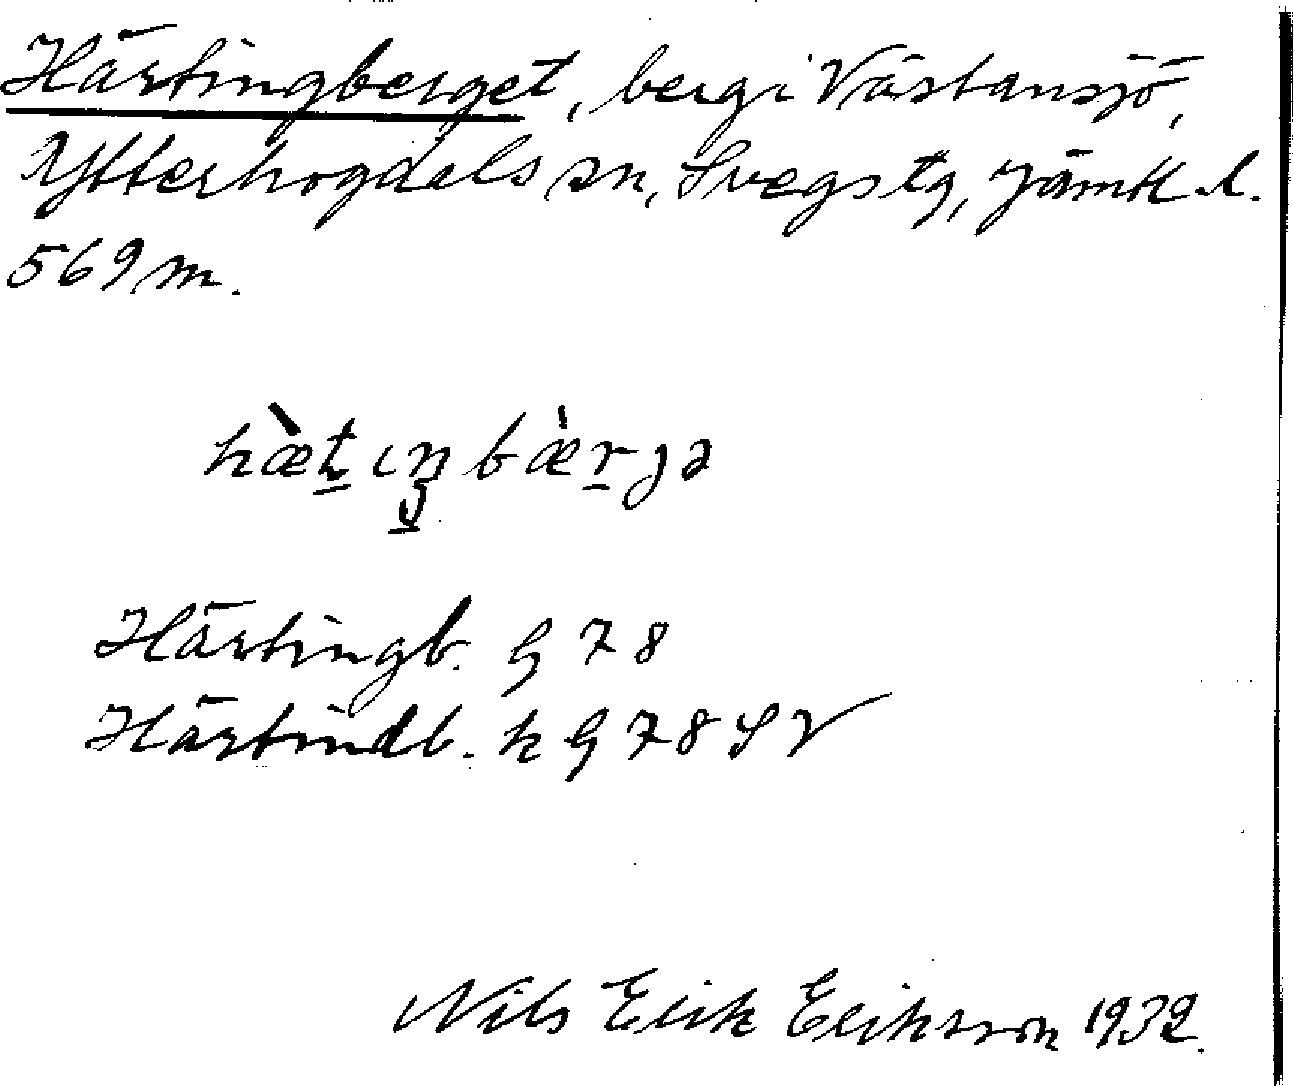 Härtingberget, berg i Västansjö,
Ytterhogdals sn, Svegs tg, Jämtl. l.
569 m.
hæ̀t̠ıŋbæ̀r̠gə
Härtingb. G 78
Härtindb. h G 78 SV
Nils Erik Eriksson 1932.